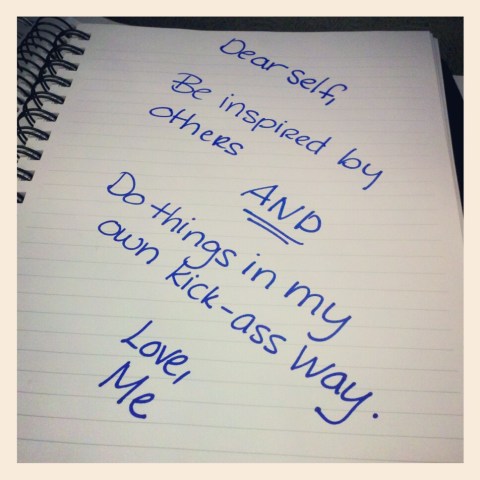 Dear self,
Be inspired by
others
AND
Do things in my
own kick-ass way.
Love,
Me